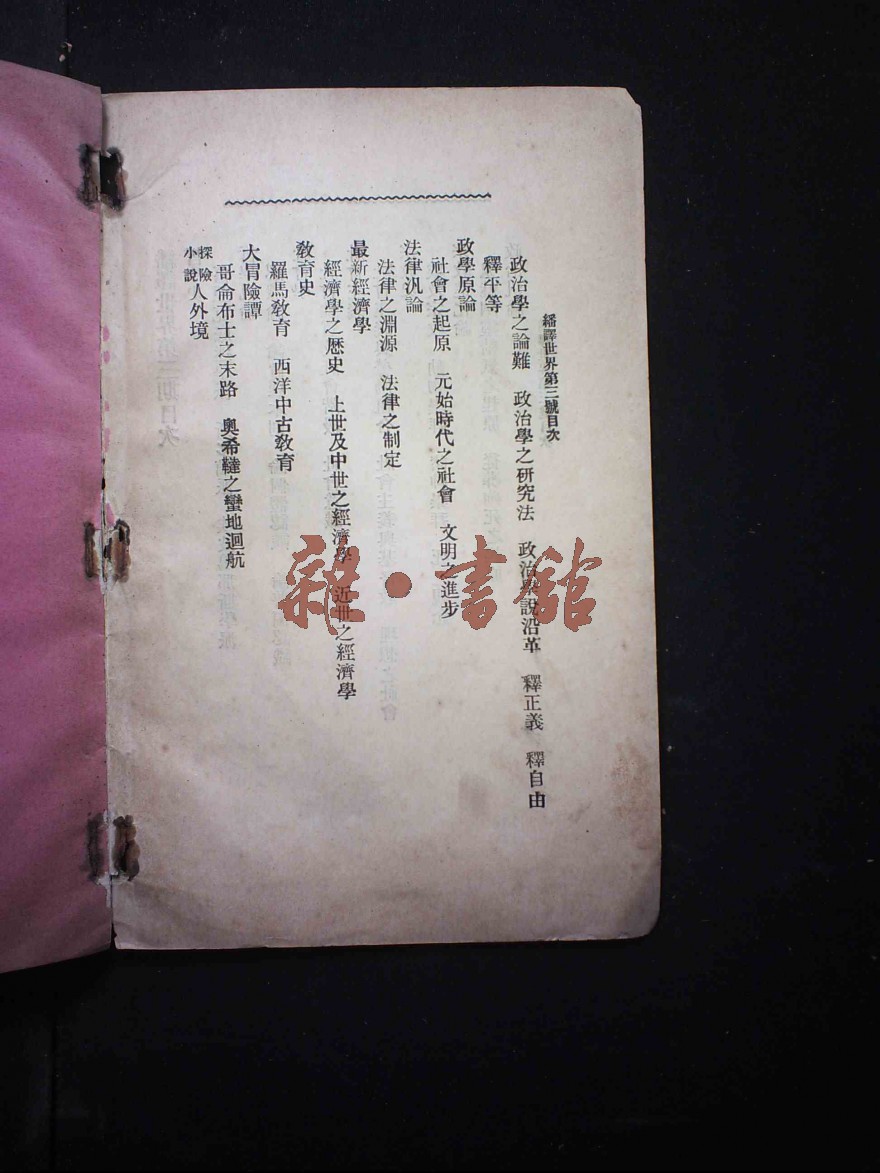 繙譯世界第三號目次
政治學之論難 政治學之研究法 政治學說沿革 釋正義 釋自由
釋平等
政學原論
社會之起原 元始時代之社會 文明之進步
法律汎論
法律之淵源 法律之制定
最新經濟學
經濟學之歷史 上世及中世之經濟學 近世之經濟學
敎育史
羅馬敎育 西洋中古敎育
大冒險譚
哥侖布士之末路 奧希韃之蠻地迴航
探險小說 人外境
雜·書館